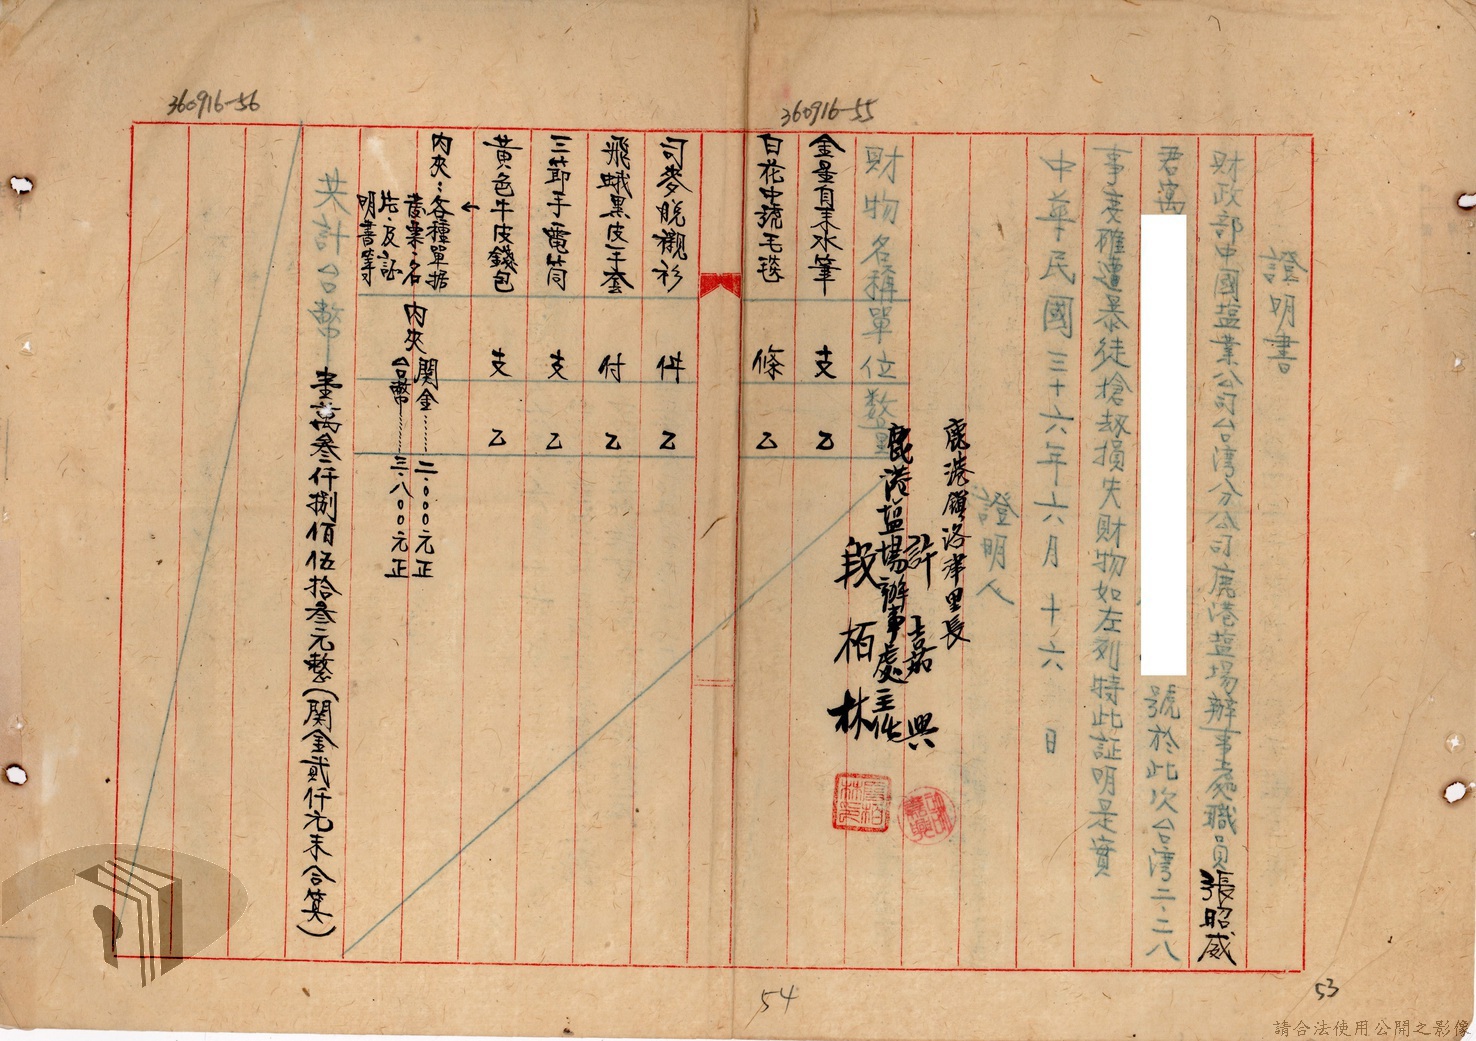 360916-55
證明書
財政部中國塩業公司台湾分公司鹿港塩場辦事處職員張昭威
君寓
號於此次台湾二.二八
事变確遭暴徒搶劫損失財物如左列特此証明是實
中華民國三十六年六月十六日
證明人
鹿港鎮洛津里長
許嘉興
鹿港塩場辦事處主任
段栢林
財物名稱 單位 数量
金星自来水筆 支 乙
白花中號毛毯 條 乙
360916-56
司麥脫襯衫 件 乙
飛蛾黑皮手套 付 乙
三節手電筒 支 乙
黃色牛皮錢包 支 乙
內夾:各種單据
片.及証
明書等
內夾
関金……二.000元正
台幣……三.八00元正
共計台幣
壹萬叁仟捌佰伍拾叁元整(関金貳仟元未合算)
53
54
請合法使用公開之影像